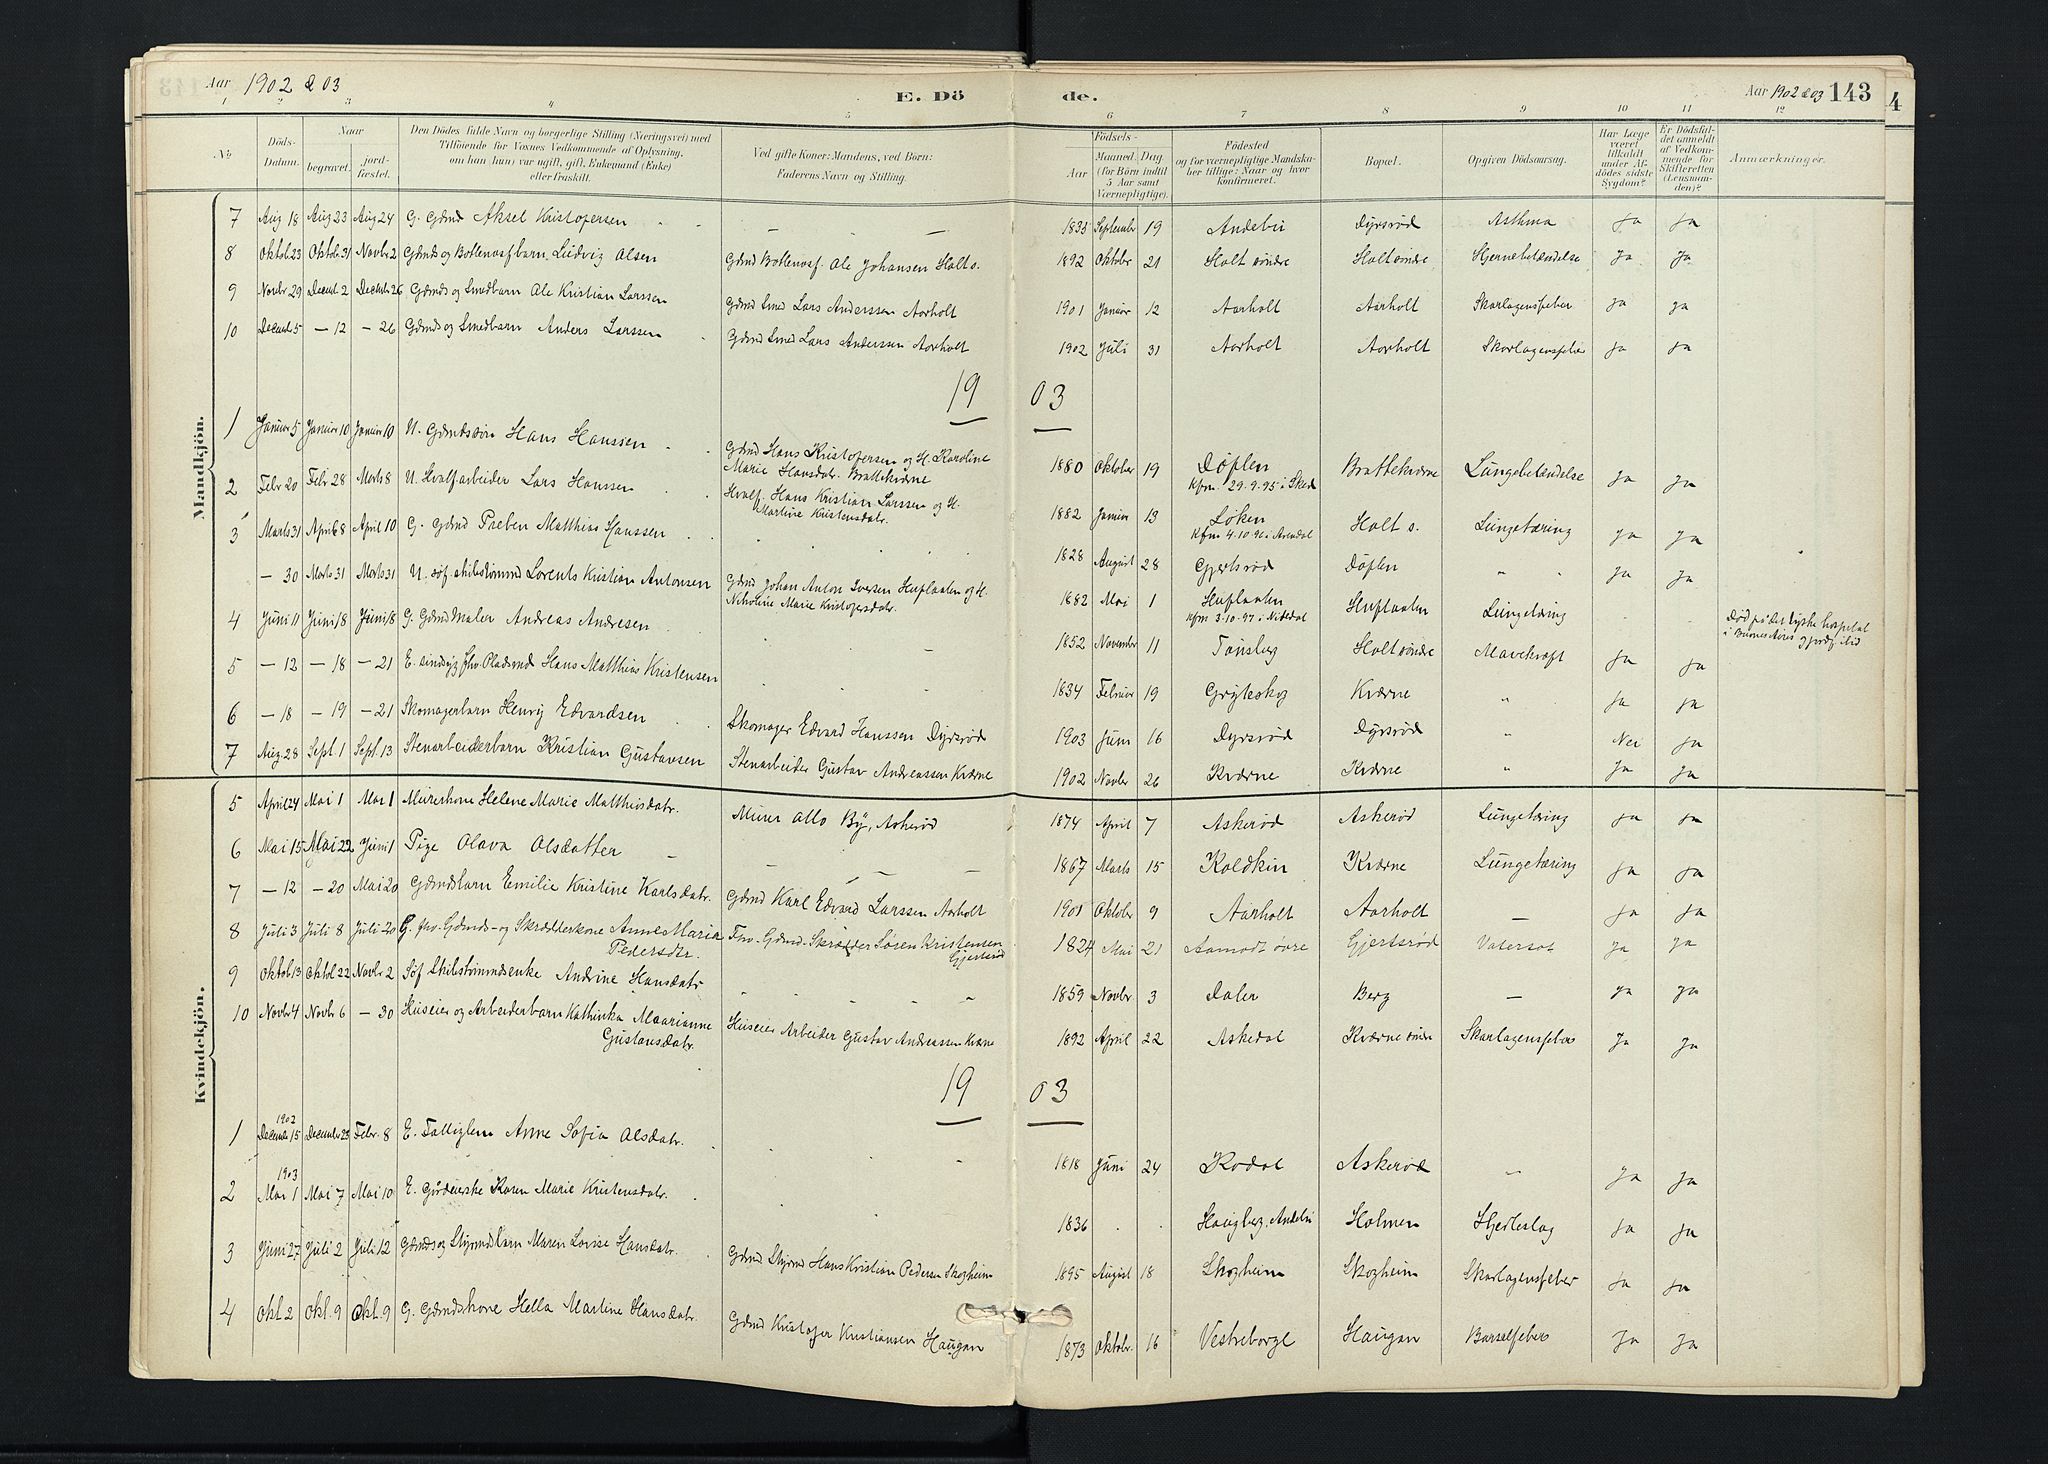 Aar 1902 & 03 E. Dö de. Aar 1902 & 03 143
1 2 3 4 5 6 7 8 9 10 11 12
№ Döds-Datum. Naar begravet. jordfæstet. Den Dödes fulde Navn og borgerlige Stilling (Næringsvei) med Tilföiende for Voxnes Vedkommende af Oplysning, om han (hun) var ugift, gift, Enkemand (Enke) eller fraskilt. Ved gifte Koner: Mandens, ved Börn: Faderens Navn og Stilling. Födsels- Aar Maaned. (for Börn indtil 5 Aar samt Værnepligtige). Dag Födested og for værnepligtige Mandskaber tillige: Naar og hvor konfirmeret. Bopæl. Opgiven Dödsaarsag. Har Læge været tilkaldt under Afdödes sidste Sygdom? Er Dödsfaldet anmeldt af Vedkommende for Skifteretten (Lensmanden)? Anmærkninger.
Mandkjön.
7 Aug 18 Aug 23 Aug 24 G. Gdmd Aksel Kristofersen — — 1833 September 19 Andebu Dyrsrød Asthma Ja Ja
8 Oktob 23 Oktob 31 Novbr 2 Gdmds og Bottenvasfbarn Ludvig Olsen Gdmd Bottenvasf. Ole Johansen Holt s. 1892 Oktober 21 Holt søndre Holt søndre Hjernebetændelse Ja Ja
9 Novbr 29 Decemb 2 Decemb 26 Gdmds og Smedbarn Ole Kristian Larssen Gdmd Smed Lars Anderssen Aarholt 1901 Januar 12 Aarholt Aarholt Skarlagensfeber Ja Ja
10 Decemb 5 — 12 — 26 Gdmds og Smedbarn Anders Larssen Gdmd Smed Lars Anderssen Aarholt 1902 Juli 31 Aarholt Aarholt Skarlagensfeber Ja Ja
19 03
1 Januar 5 Januar 10 Januar 10 U. Gdmdssøn Hans Hanssen Gdmd Hans Kristofersen og H. Karoline Marie Hansdatr. Brattekværne 1880 Oktober 19 Døplen Kfm. 29.9.95 i Sked Brattekværne Lungebetændelse Ja Ja
2 Febr 20 Febr 28 Marts 8 U. Hvalfarbeider Lars Hanssen Hvalf. Hans Kristian Larssen og H. Martine Kristensdatr. 1882 Januar 13 Løken Kfm 4.10.96 i Arendal Holt s. Lungetæring Ja Ja
3 Marts 31 April 8 April 10 G. Gdmd Preben Matthias Hanssen 1828 August 28 Gjertsrød Døplen " " Ja Ja
— 30 Marts 31 Marts 31 U. søf. skibstømmd Lorents Kristian Antonsen Gdmd Johan Anton Iversen Huflaaten og H. Nicholine Marie Kristofersdatr. 1882 Mai 1 Huflaaten Kfm 3.10.97 i Nittedal Huflaaten Lungetæring Død på det tyske hospital i Buenos Aires
4 Juni 11 Juni 18 Juni 18 G. Gdmd Maler Andreas Andresen — 1852 November 11 Tønsberg Holt søndre Mavekræft Ja Ja
5 — 12 — 18 — 21 E. sindsyg fhv. Pladsmd Hans Matthias Kristensen — 1834 Februar 19 Gryteskog Kværne " Ja Ja
6 — 18 — 19 — 21 Skomagerbarn Henrig Edvardsen Skomager Edvard Hanssen Dyrsrød 1903 Juni 16 Dyrsrød Dyrsrød " Nei Ja
7 Aug. 28 Sept 1 Sept 13 Stenarbeiderbarn Kristian Gustavsen Stenarbeider Gustav Andreassen Kværne 1902 Novbr 26 Kværne Kværne " Ja Ja
Kvindekjön.
5 April 24 Mai 1 Mai 1 Murerkone Helene Marie Matthisdatr. Murer Otto By, Askerød 1874 April 7 Askerød Askerød Lungetæring Ja Ja
6 Mai 15 Mai 22 Juni 1 Pige Olava Olsdatter — — — — 1867 Marts 15 Koldkin Kværne Lungetæring Ja Ja
7 — 12 — 20 Mai 20 Gdmdsbarn Emilie Kristine Karlsdatr. Gdmd Karl Edvard Larssen Aarholt 1901 Oktober 9 Aarholt Aarholt — Ja Ja
8 Juli 3 Juli 8 Juli 20 G. fhv. Gdmds- og Skrædderkone Anne Maria Pedersdtr. Fhv. Gdmd- Skrædder Søren Kristensen Gjertsrød 1824 Mai 21 Aamodt øvre Gjertsrød Vatersot Ja Ja
9 Oktob 13 Oktob 22 Novbr 2 Søf Skibstømmdsenke Andrine Hansdatr " " " " 1859 Novbr. 3 Daler Berg — Ja Ja
10 Novbr 4 Novbr 6 — 30 Huseier og Arbeiderbarn Kathinka Maarianne Gustavsdatr. Huseier Arbeider Gustav Andreassen Kværne 1892 April 22 Askedal Kværne søndre Skarlagensfeber Ja Ja
19 03
1 1902 December 15 December 23 Febr. 8 E. Fattiglem Anne Sofia Olsdatr. — 1818 Juni 24 Kodal Askerød " Ja Ja
2 1903 Mai 1 Mai 7 Mai 10 E. Gårdeierske Karen Marie Kristensdatr. 1836 Haugberg. Andebu Holmen Hjerteslag Ja Ja
3 Juni 27 Juli 2 Juli 12 Gdmds og Styrmdsbarn Maren Lovise Hansdatr. Gdmd Styrmd Hans Kristian Pedersen Skogheim 1895 August 18 Skogheim Skogheim Skarlagensfeber Ja Ja
4 Okt 2 Okt. 9 Okt. 9 G. Gdmdskone Hella Martine Hansdatr. Gdmd Kristofer Kristiansen Haugan 1873 Oktobr. 16 Vestreborge Haugan Barselfeber Ja Ja